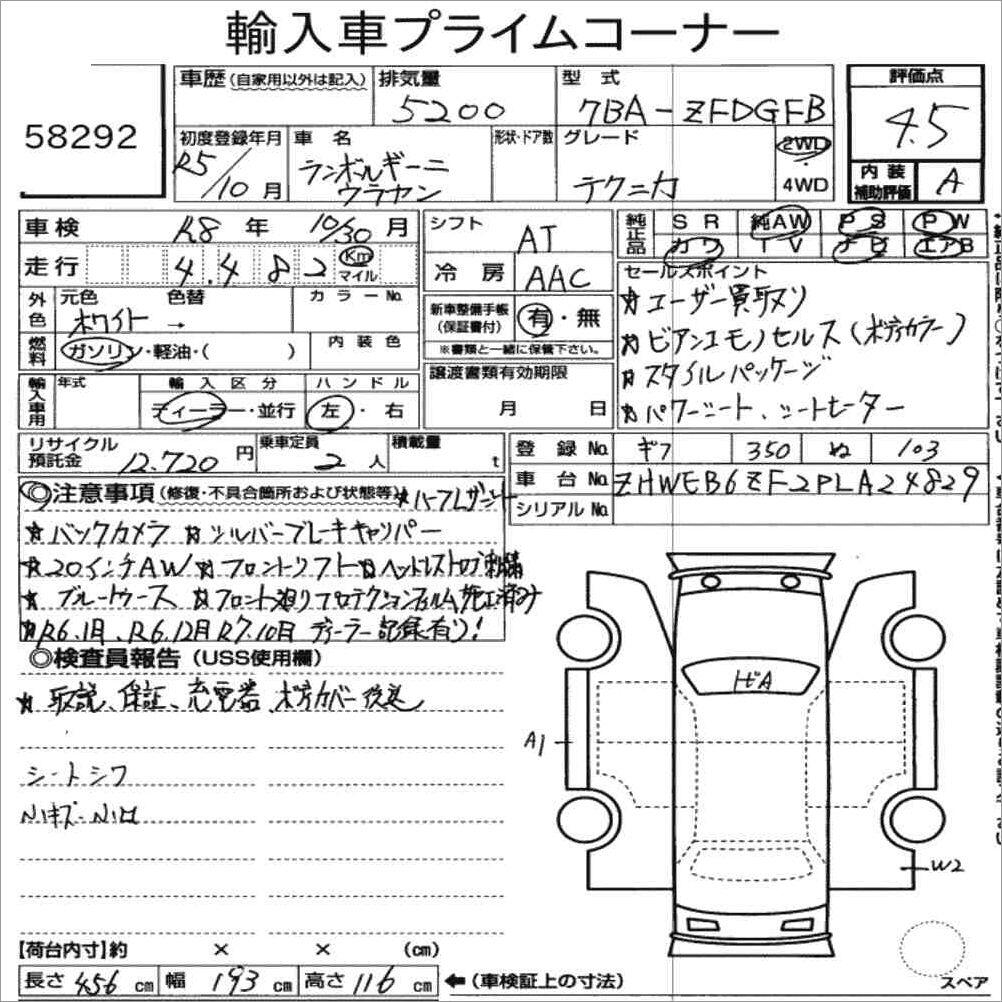 輸入車プライムコーナー
58292
車歴(自家用以外は記入) 排気量 5200 型式 7BA-ZFDGFB 評価点 4.5
初度登録年月 R5/10月 車名 ランボルギーニ ウラカン 形状・ドア数 グレード テクニカ 2WD・4WD 内装補助評価 A
車検 R8年 10/30月 シフト AT 純正品 SR 純AW PS PW
走行 4.482 Km マイル 冷房 AAC カワ TV ナビ エアB
外色 元色 ホワイト 色替 → カラーNo. 新車整備手帳(保証書付) 有・無
燃料 ガソリン・軽油・( ) 内装色 ※書類と一緒に保管下さい。
輸入車用 年式 輸入区分 ディーラー・並行 ハンドル 左・右 譲渡書類有効期限 月 日
セールスポイント
☆ユーザー買取り
☆ビアンコモノセルス(ボディカラー)
☆スタイルパッケージ
☆パワーシート、シートヒーター
リサイクル預託金 12.720円 乗車定員 2人 積載量 t 登録No. ギフ 350 ぬ 103
車台No. ZHWEB6ZF2PLA24829
シリアルNo.
◎注意事項(修復・不具合箇所および状態等)☆ハーフレザーシート
☆バックカメラ ☆シルバーブレーキキャリパー
☆20インチAW ☆フロントリフト ☆ヘッドレストロゴ刺繍
☆ブルートゥース ☆フロント廻りプロテクションフィルム施工済み
☆R6.1月、R6.12月 R7.10月 ディーラー記録有り!
◎検査員報告(USS使用欄)
☆取説、保証、充電器、ボディカバー後送
シートシワ
小キズ・小凹
トビA
A1
W2
【荷台内寸】約 × × (cm)
長さ 456 cm 幅 193 cm 高さ 116 cm ←(車検証上の寸法)
スペア